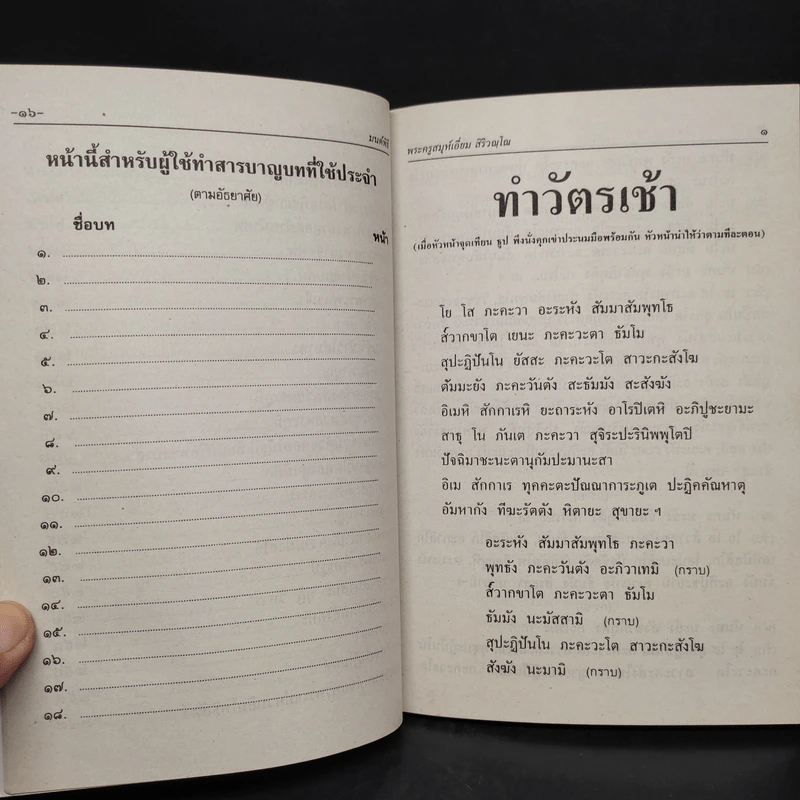 -๑๖-
มนต์พิธี
หน้านี้สำหรับผู้ใช้ทำสารบาญบทที่ใช้ประจำ
(ตามอัธยาศัย)
ชื่อบท หน้า
๑.
๒.
๓.
๔.
๕.
๖.
๗.
๘.
๙.
๑๐.
๑๑.
๑๒.
๑๓.
๑๔.
๑๕.
๑๖.
๑๗.
๑๘.
พระครูสมุห์เอี่ยม สิริวณฺโณ ๑
ทำวัตรเช้า
(เมื่อหัวหน้าจุดเทียน ธูป พึงนั่งคุกเข่าประนมมือพร้อมกัน หัวหน้านำให้ว่าตามทีละตอน)
โย โส ภะคะวา อะระหัง สัมมาสัมพุทโธ
ส๎วากขาโต เยนะ ภะคะวะตา ธัมโม
สุปะฏิปันโน ยัสสะ ภะคะวะโต สาวะกะสังโฆ
ตัมมะยัง ภะคะวันตัง สะธัมมัง สะสังฆัง
อิเมหิ สักกาเรหิ ยะถาระหัง อาโรปิเตหิ อะภิปูชะยามะ
สาธุ โน ภันเต ภะคะวา สุจิระปะรินิพพุโตปิ
ปัจฉิมาชะนะตานุกัมปะมานะสา
อิเม สักกาเร ทุคคะตะปัณณาการะภูเต ปะฏิคคัณหาตุ
อัมหากัง ทีฆะรัตตัง หิตายะ สุขายะ ฯ
อะระหัง สัมมาสัมพุทโธ ภะคะวา
พุทธัง ภะคะวันตัง อะภิวาเทมิ (กราบ)
ส๎วากขาโต ภะคะวะตา ธัมโม
ธัมมัง นะมัสสามิ (กราบ)
สุปะฏิปันโน ภะคะวะโต สาวะกะสังโฆ
สังฆัง นะมามิ (กราบ)